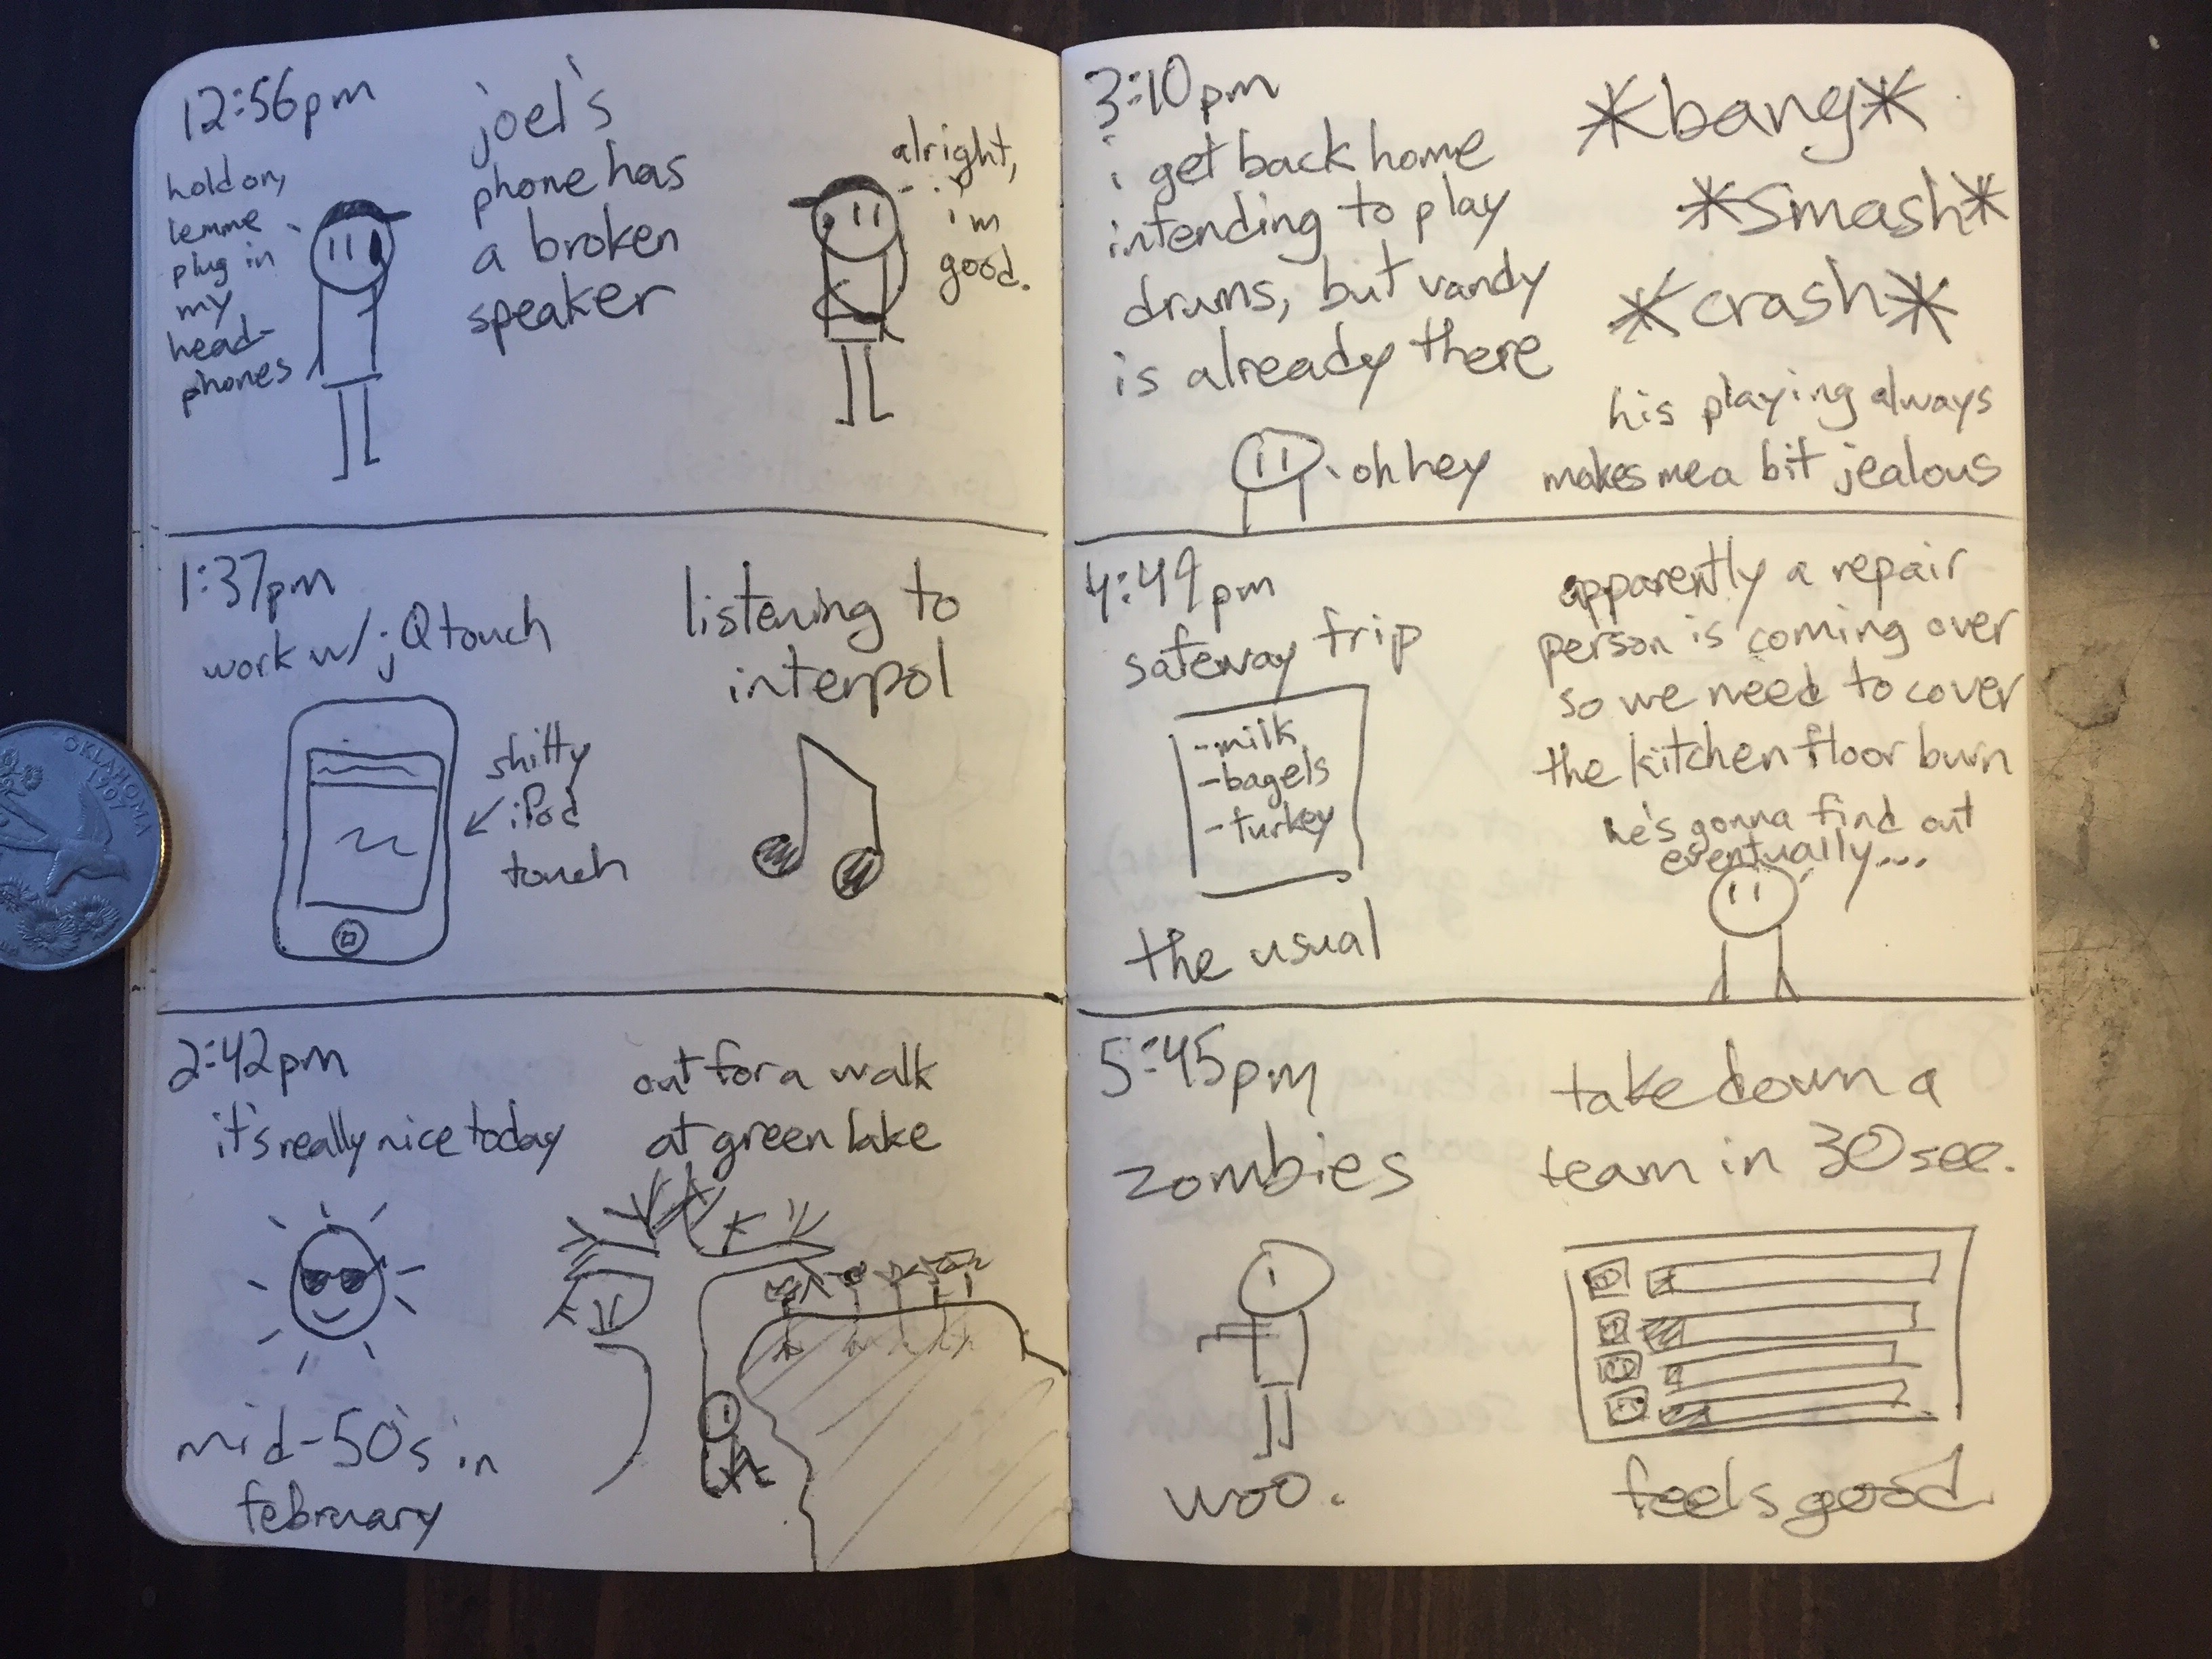 12:56pm
hold on,
lemme
plug in
my
head-
phones
joel's
phone has
a broken
speaker
alright,
i'm
good.
1:37pm
work w/ jQtouch
shitty
iPod
touch
listening to
interpol
2:42pm
it's really nice today
mid-50's in
february
out for a walk
at green lake
3:10pm
i get back home
intending to play
drums, but vandy
is already there
oh hey
*bang*
*smash*
*crash*
his playing always
makes me a bit jealous
4:49pm
safeway trip
-milk
-bagels
-turkey
the usual
apparently a repair
person is coming over
so we need to cover
the kitchen floor burn
he's gonna find out
eventually...
5:45pm
zombies
woo.
take down a
team in 30 sec.
feels good
OKLAHOMA
1907